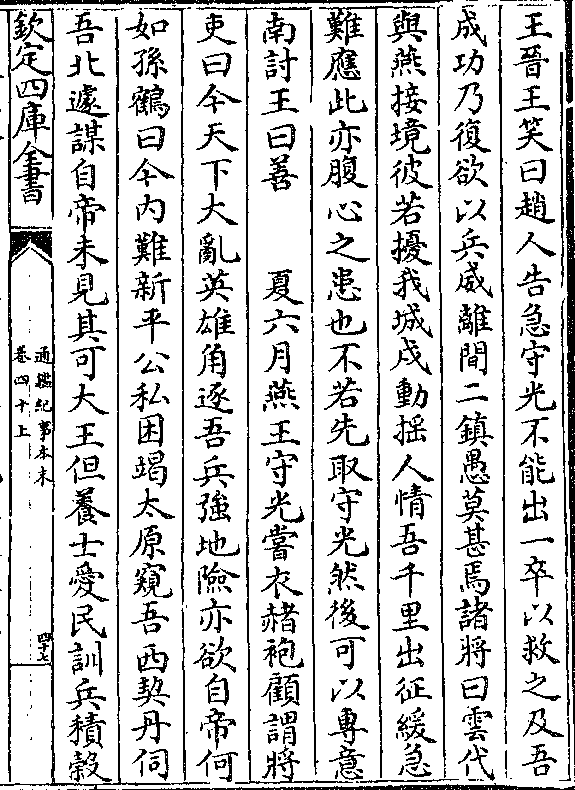 王晉王笑曰趙人告急守光不能出一卒以救之及吾
成功乃復欲以兵威離間二鎮愚莫甚焉諸將曰雲代
與燕接境彼若擾我城戍動揺人情吾千里出征緩急
難應此亦腹心之患也不若先取守光然後可以專意
南討王曰善　夏六月燕王守光嘗衣赭袍顧謂將
吏曰今天下大亂英雄角逐吾兵強地險亦欲自帝何
如孫鶴曰今内難新平公私困竭太原窺吾西契丹伺
吾北遽謀自帝未見其可大王但養士愛民訓兵積穀
欽定四庫全書
通鑑紀事本末
卷四十上
四十七